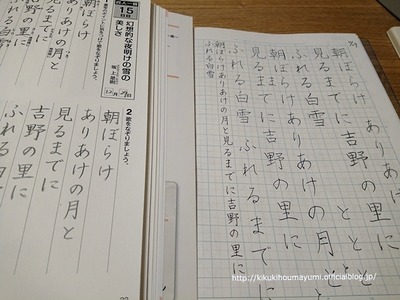 15日目
幻想的な夜明けの雪の
美しさ
坂上是則
12月4日
朝ぼらけ
ありあけの月と
見るまでに
吉野の里に
2 歌をなぞりましょう。
朝ぼらけ
ありあけの月と
見るまでに
吉野の里に
ふれる白
ありあけ
朝ぼらけ
見るまでに吉野の里に
ふれる白雪
朝ぼらけありあけの月と
見るまでに吉野の里に
ふれる白雪 ふれる
朝ぼらけありあけの月と見るまでに吉野の里に
ふれる白雪
http://kikukihoumayumi.officialblog.jp/